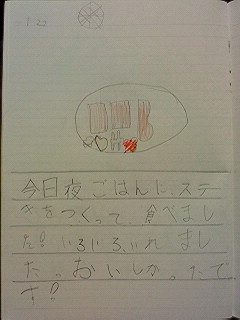 1-22
今日夜ごはんに、ステー
キをつくって、食べまし
た!いろいろいれまし
た。おいしかったで
す!